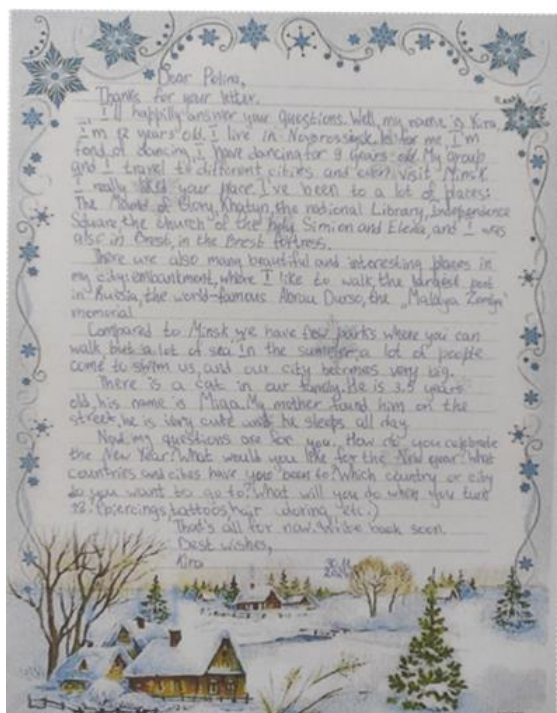 Dear Polina,
Thanks for your letter.
I happily answer your questions. Well, my name is Kira
I'm 12 years old. I live in Novorossiysk. As for me, I'm
fond of dancing, I have dancing for 9 years old. My group
and I travel to different cities and even visit Minsk
I really liked your place. I've been to a lot of places:
The Mound of Glory, Khatyn, the national Library, Independence
Square, the church of the Simion and Elena, and I was
also in Brest, in the Brest fortress.
There are also many beautiful and interesting places in
my city: embankment, where I like to walk, the largest port
in Russia, the world-famous Abrau Durso, the „Malaya Zemlya"
memorial
Compared to Minsk, we have few parks where you can
walk, but a lot of sea. In the summer, a lot of people
come to swim us, and our city becomes very big.
There is a cat in our family. He is 3.5 years
old, his name is My mother found him on the
street, he is very cute and he sleeps all day
Now, my questions are for you. How do you celebrate
the New Year? What would you like for the New year? What
countries and cities have you been to? Which country or city
do you want to go to? What will you do when you turn
18? (piercings, tattoos, hair etc.)
That's all for now. Write back soon
Best wishes,
Kira